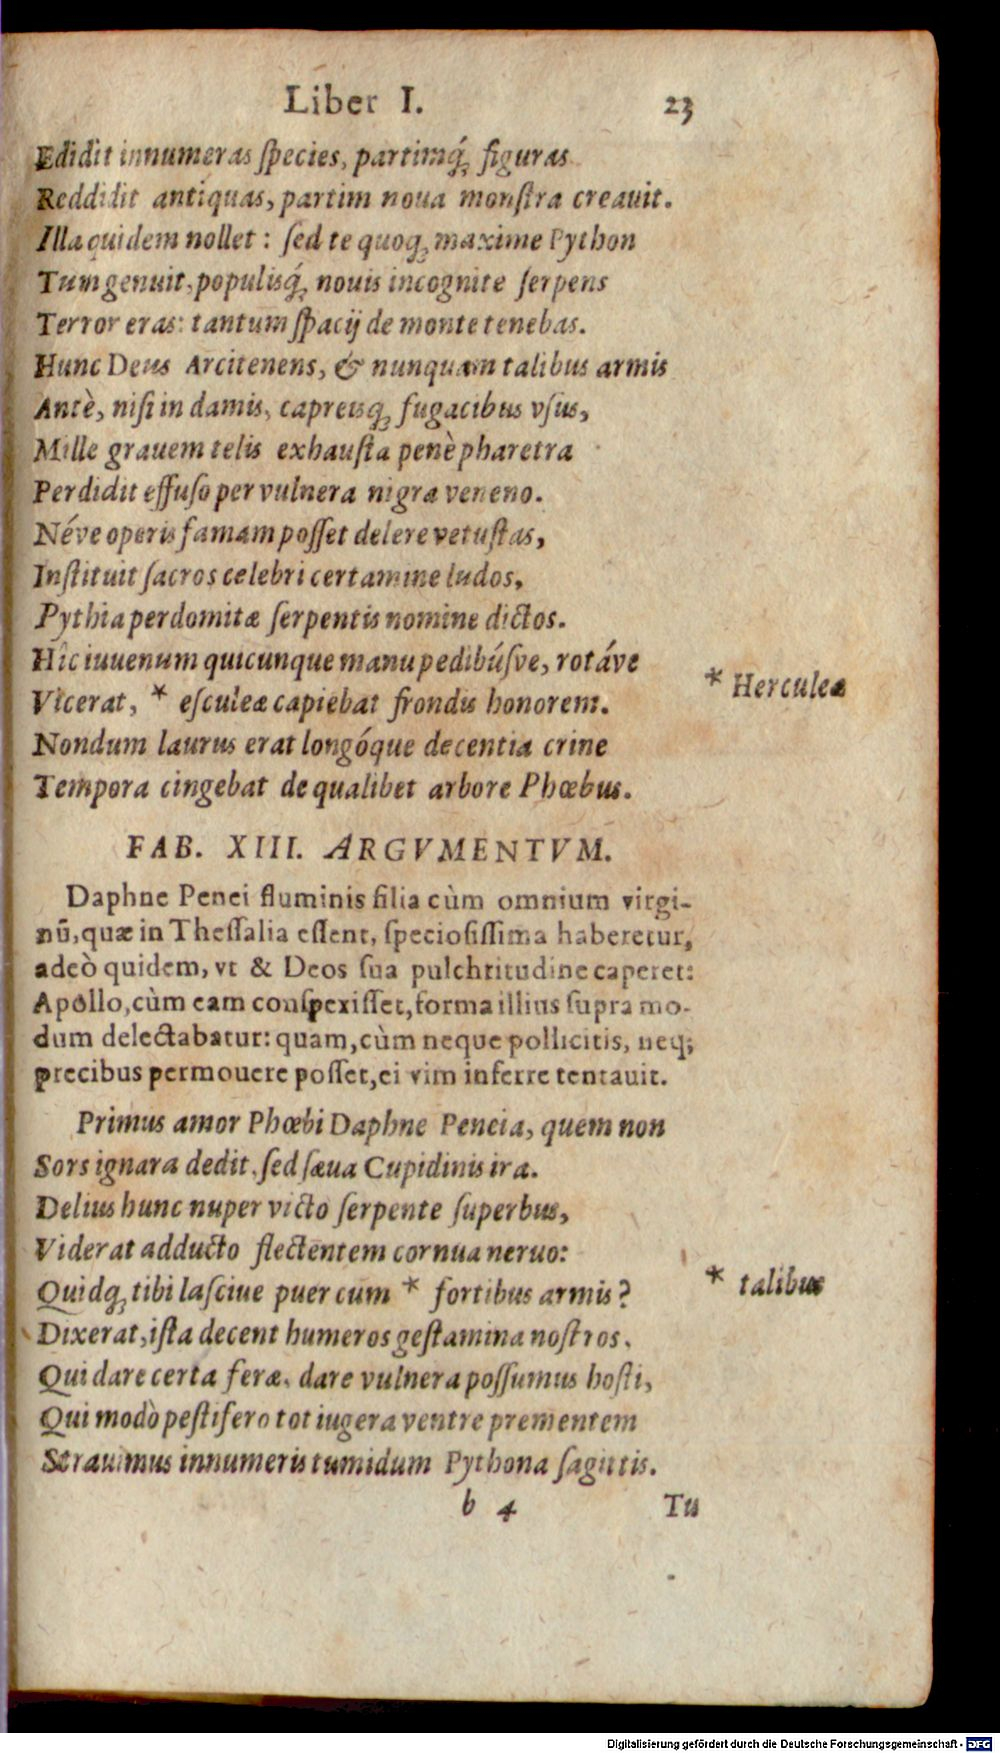 Liber I. 23
Edidit innumeras ſpecies, partimq́; figuras
Reddidit antiquas, partim noua monſtra creauit.
Illa quidem nollet: ſed te quoq; maxime Python
Tum genuit, populisq́; nouis incognite ſerpens
Terror eras: tantum ſpacij de monte tenebas.
Hunc Deus Arcitenens, & nunquam talibus armis
Antè, niſi in damis, capreisq; fugacibus vſus,
Mille grauem telis exhauſta penè pharetra
Perdidit effuſo per vulnera nigra veneno.
Néve operis famam poſſet delere vetuſtas,
Inſtituit ſacros celebri certamine ludos,
Pythia perdomitæ ſerpentis nomine dictos.
Hîc iuuenum quicunque manu pedibúſve, rotáve
Vicerat, * eſculeæ capiebat frondis honorem.
* Herculeæ
Nondum laurus erat longóque decentia crine
Tempora cingebat de qualibet arbore Phœbus.
FAB. XIII. ARGVMENTVM.
Daphne Penei fluminis filia cùm omnium virgi-
nū, quæ in Theſſalia eſſent, ſpecioſiſſima haberetur,
adeò quidem, vt & Deos ſua pulchritudine caperet:
Apollo, cùm eam conſpexiſſet, forma illius ſupra mo-
dum delectabatur: quam, cùm neque pollicitis, neq;
precibus permouere poſſet, ei vim inferre tentauit.
Primus amor Phœbi Daphne Peneia, quem non
Sors ignara dedit, ſed ſæua Cupidinis ira.
Delius hunc nuper victo ſerpente ſuperbus,
Viderat adducto flectentem cornua neruo:
Quidq; tibi laſciue puer cum * fortibus armis?
* talibus
Dixerat, iſta decent humeros geſtamina noſtros.
Qui dare certa feræ, dare vulnera poſſumus hoſti,
Qui modò peſtifero tot iugera ventre prementem
Strauimus innumeris tumidum Pythona ſagittis.
b 4 Tu
Digitalisierung gefördert durch die Deutsche Forschungsgemeinschaft - DFG